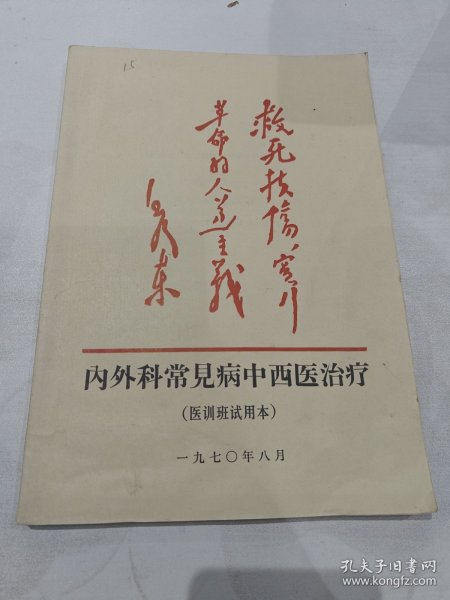 15
救死扶傷，實行
革命的人道主義
毛泽东
內外科常見病中西医治疗
（医训班试用本）
一九七〇年八月
孔夫子旧书网
www.kongfz.com